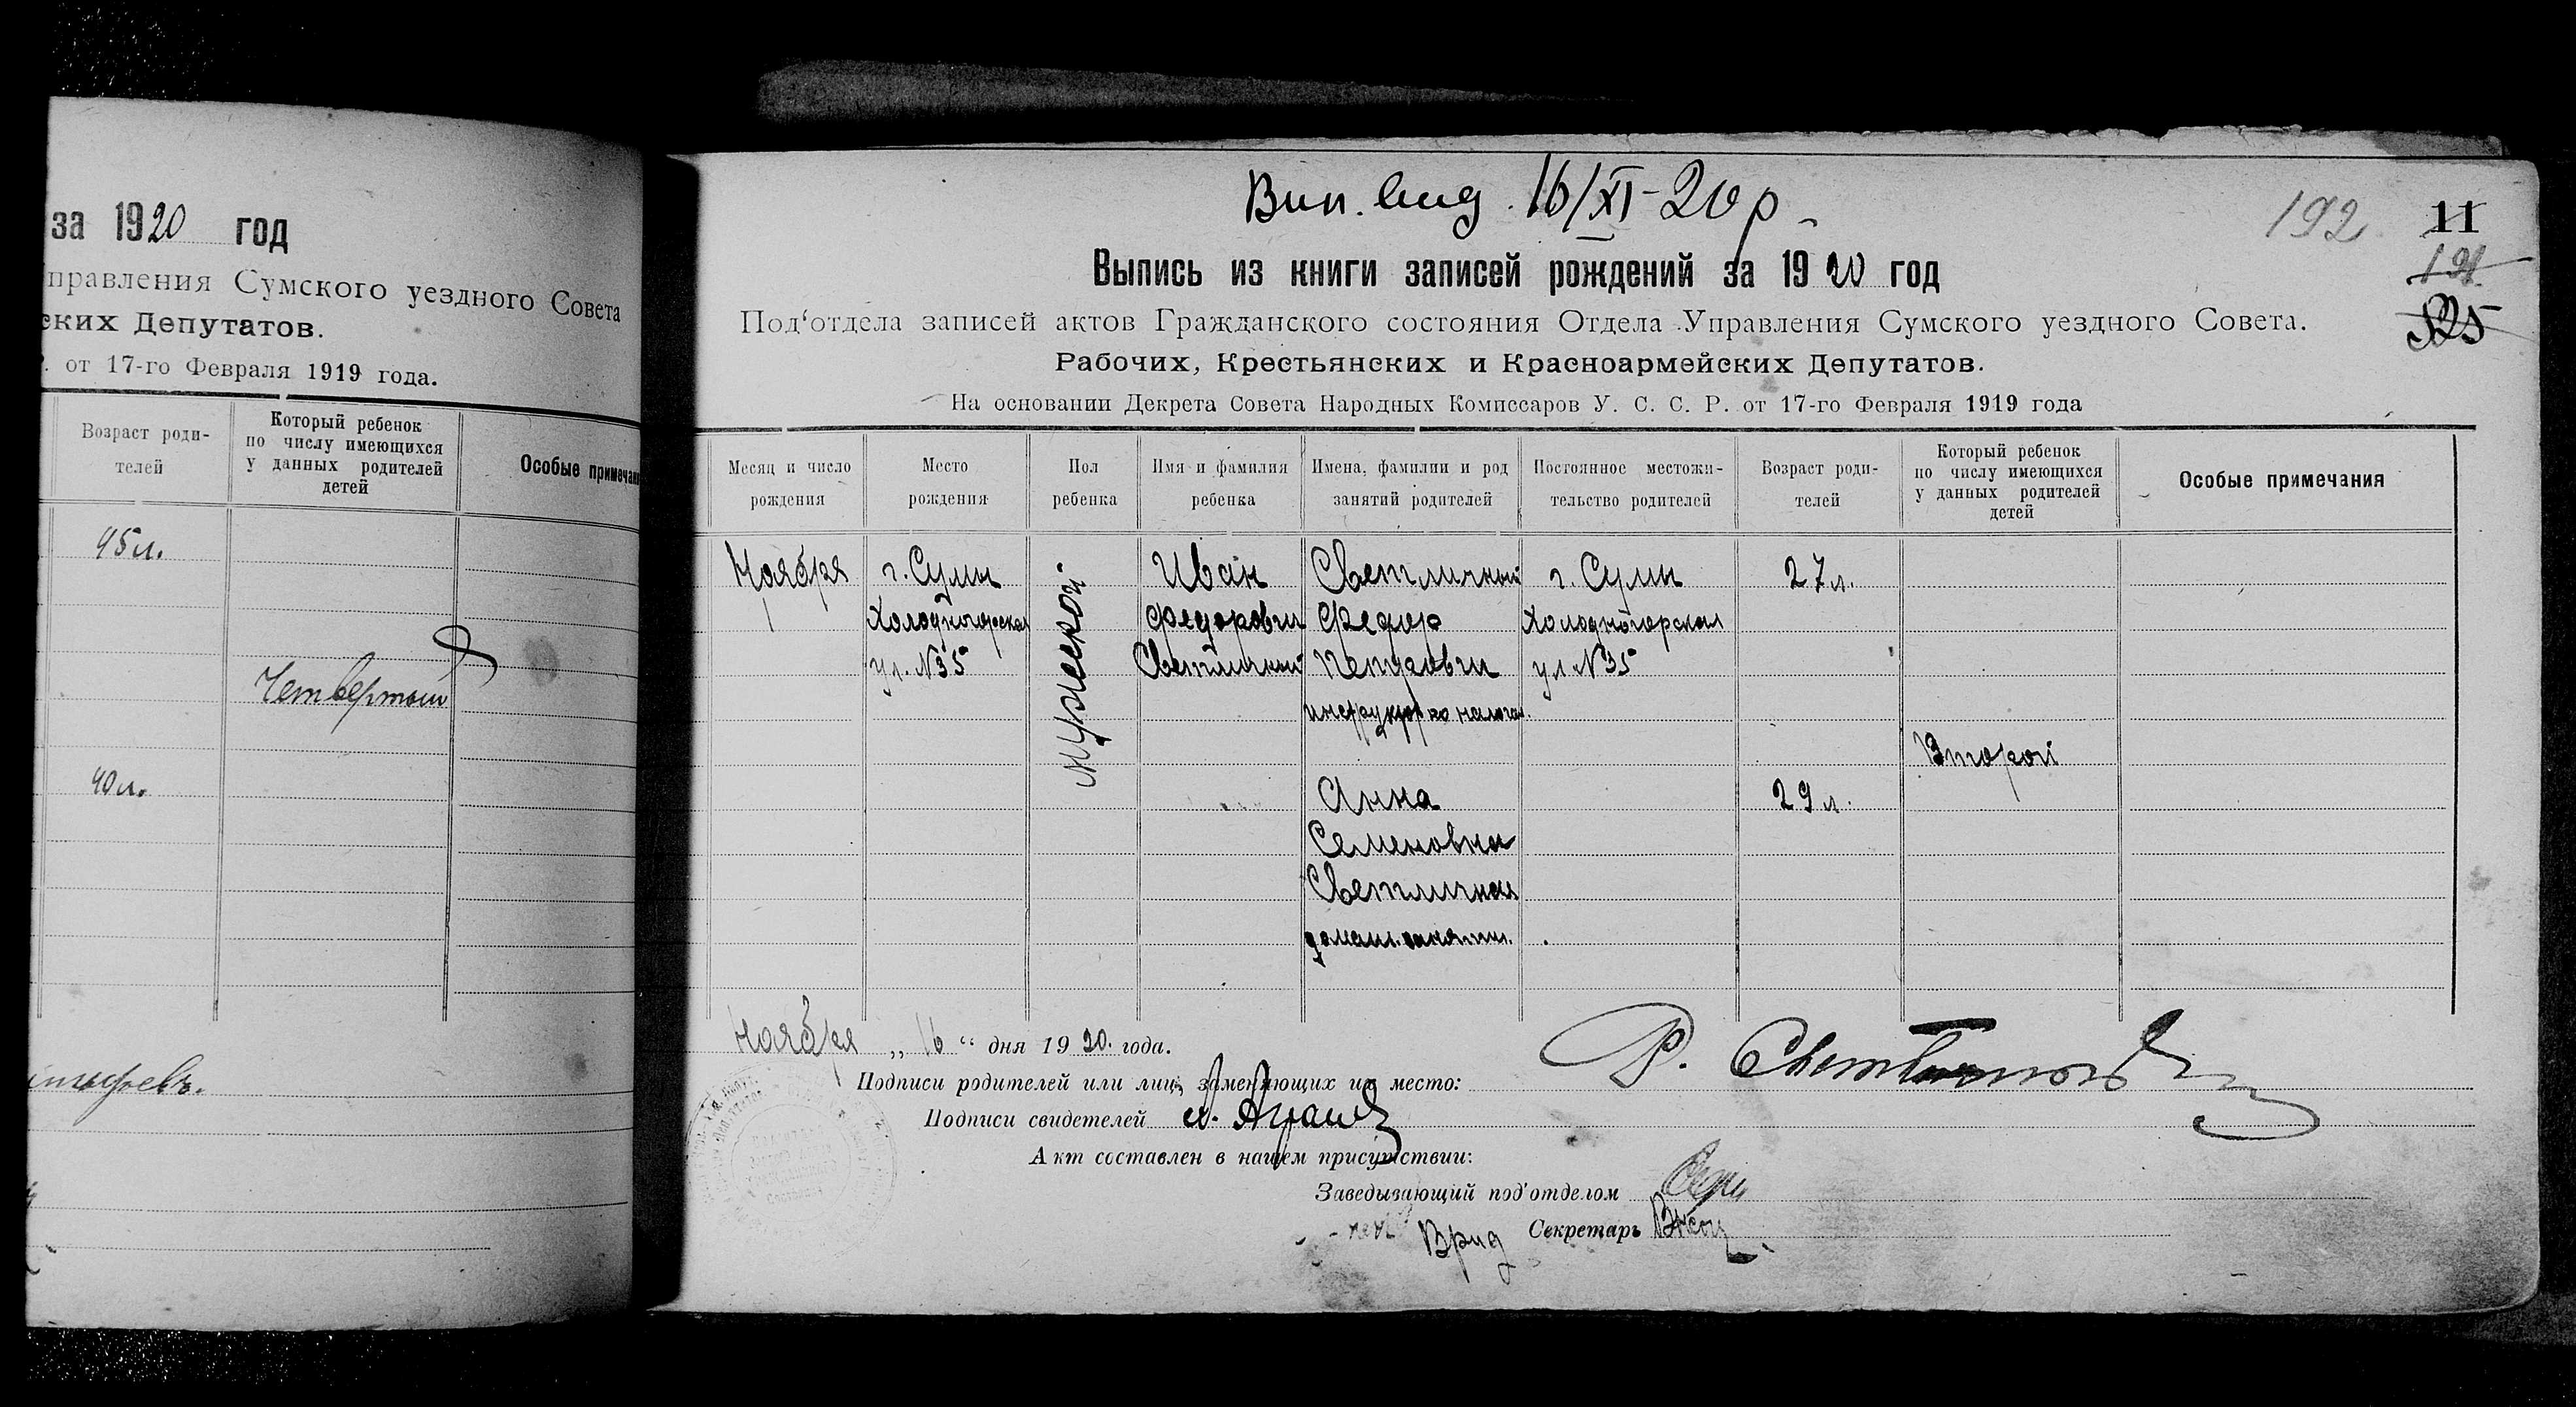 за 1920 год
правления Сумского уездного Совета
ских Депутатов.
. от 17-го Февраля 1919 года.
Возраст роди-
телей
Который ребенок
по числу имеющихся
у данных родителей
детей
Особые примечани
45 л.
Четвертый
40 л.
Вип. вид. 16/XI-20 р.
192
11
191
Выпись из книги записей рождений за 1920 год
Под‘отдела записей актов Гражданского состояния Отдела Управления Сумского уездного Совета.
Рабочих, Крестьянских и Красноармейских Депутатов.
На основании Декрета Совета Народных Комиссаров У. С. С. Р. от 17-го Февраля 1919 года
Месяц и число
рождения
Место
рождения
Пол
ребенка
Имя и фамилия
ребенка
Имена, фамилии и род
занятий родителей
Постоянное местожи-
тельство родителей
Возраст роди-
телей
Который ребенок
по числу имеющихся
у данных родителей
детей
Особые примечания
Ноября
1
г. Сумы
Холодногорская
ул. №35
мужеской
Иван
Федорович
Светличный
Светличный
Федор
Петрович
инструктор по налогам.
Анна
Семеновна
Светличная
домаш. занятия.
г. Сумы
Холодногорская
ул №35
27 л.
29 л.
Второй
Ноября „ 16 “ дня 1920. года.
Подписи родителей или лиц, заменяющих их место:
Подписи свидетелей
Акт составлен в нашем присутствии:
Заведывающий под'отделом
Врид Секретарь